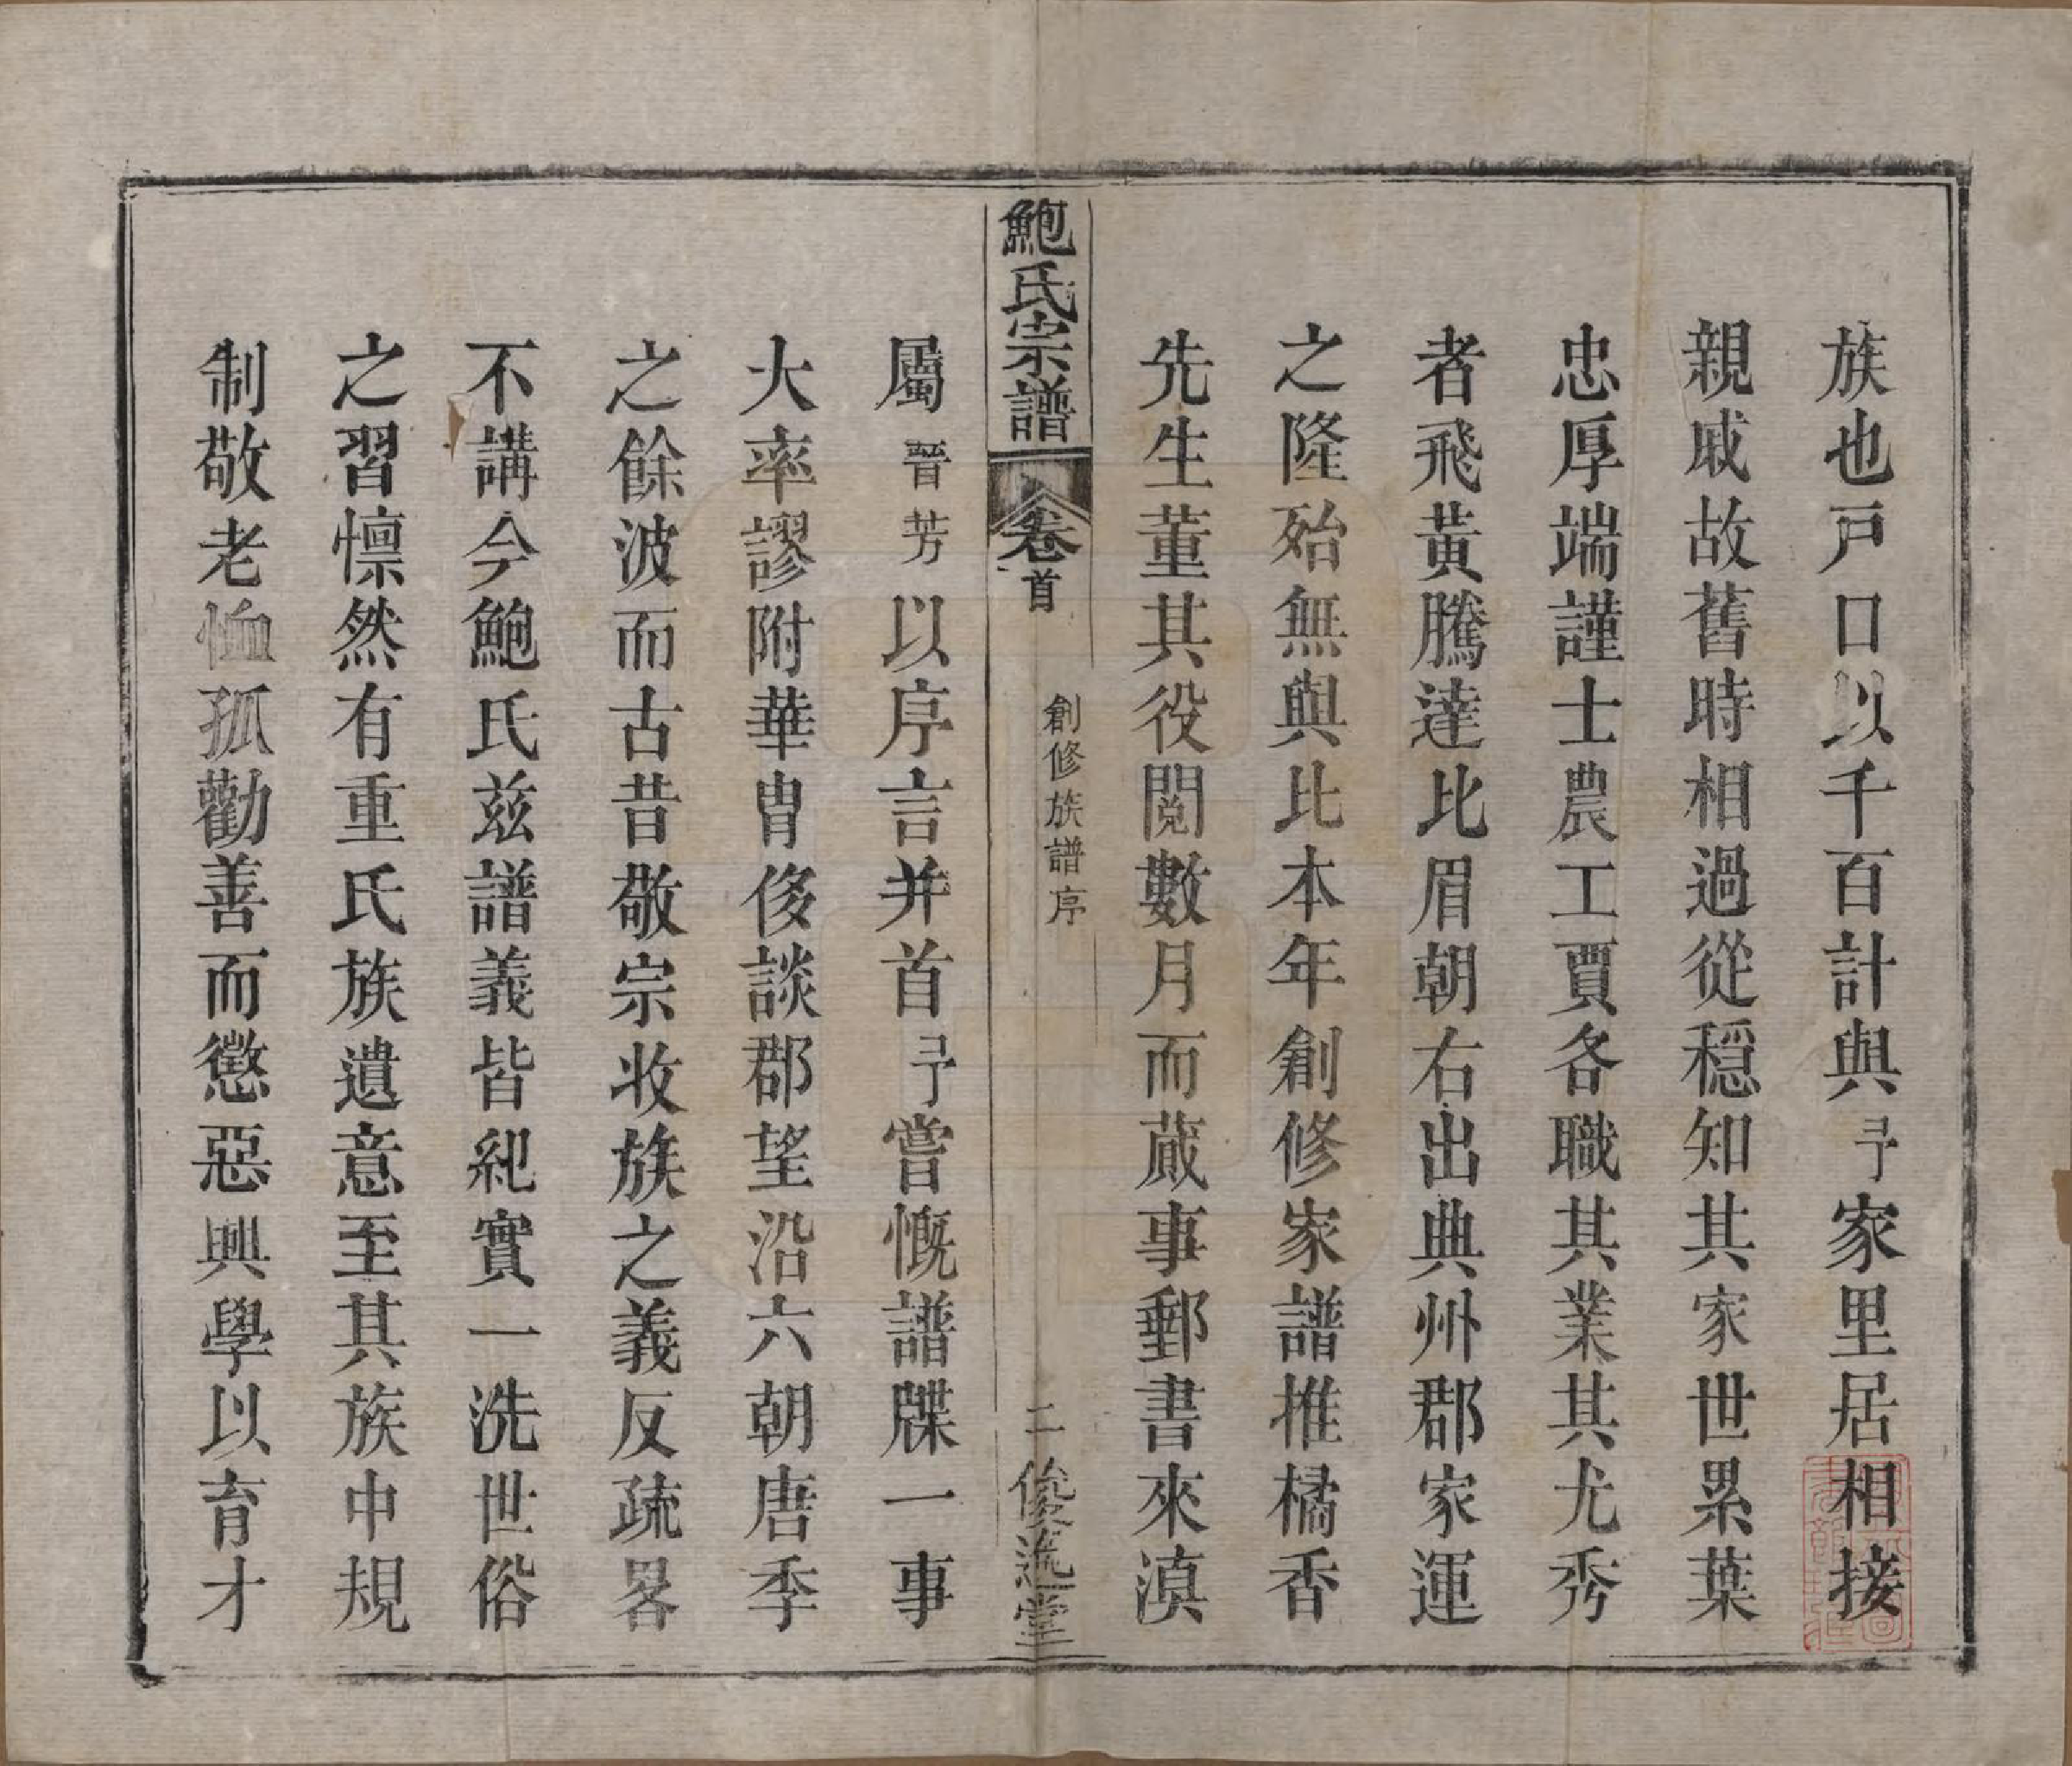 族也戸口以千百計與予家里居相接
親戚故舊時相過從穩知其家世累葉
忠厚端謹士農工賈各職其業其尤秀
者飛黃騰達比眉朝右出典州郡家運
之隆殆無與比本年創修家譜推橘香
先生董其役閱數月而蕆事郵書來滇
鮑氏宗譜 卷首 創修族譜序 二 俊逸堂
屬晉芳以序言弁首予嘗慨譜牒一事
大率謬附華胄侈談郡望沿六朝唐季
之餘波而古昔敬宗收族之義反疏畧
不講今鮑氏茲譜義皆紀實一洗世俗
之習懍然有重氏族遺意至其族中規
制敬老恤孤勸善而懲惡興學以育才